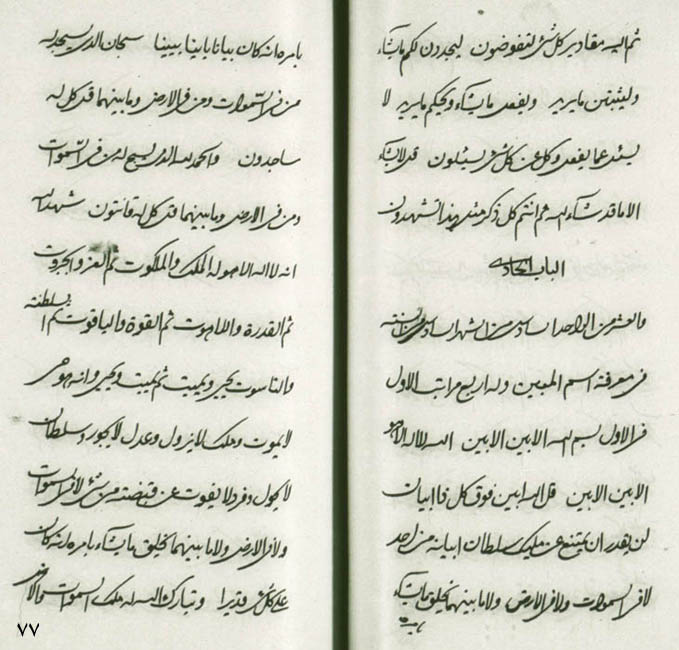 ثم اليه مقادير كل شيء لتفوضون ليجددن لكم مايشاء
وليثبتن مايريد ويفعل مايشاء ويحكم مايريد لا
يسئل عما يفعل وكل عن كل شيء يسئلون قل لايشاء
الا ما قد شاء الله ثم انتم كل ذكر
الباب الحادي
والعشر من الواحد السادس من الشهر السادس من السنة
في معرفة اسم المبين وله اربع مراتب الاول
في الاول بسم الله الابين الابين الله لا اله الا هو
الابين الابين قل الله ابين فوق كل ذا ابيان
لن يقدر ان يمتنع عن مليك سلطان ابيانه من احد
لا في السموات ولا في الارض ولا ما بينهما يخلق مايشاء
بامره
بامره انه كان بيانا باينا بيينا سبحان الذي يسجد له
من في السموات ومن في الارض وما بينهما قل كل له
ساجدون والحمد لله الذي يسبح له من في السموات
ومن في الارض وما بينهما قل كل له قانتون شهد الله
انه لا اله الا هو له الملك والملكوت ثم العز والجبروت
ثم القدرة واللاهوت ثم القوة والياقوت ثم السلطنة
والناسوت يحيي ويميت ثم يميت ويحيي وانه هو حي
لا يموت وملك لا يزول وعدل لا يجور وسلطان
لا يحول وفرد لا يفوت عن قبضته من شيء لا في السموات
ولا في الارض ولا ما بينهما يخلق مايشاء بامره انه كان
على كل شيء قديرا وتبارك الذي له ملك السموات والارض
٧٧